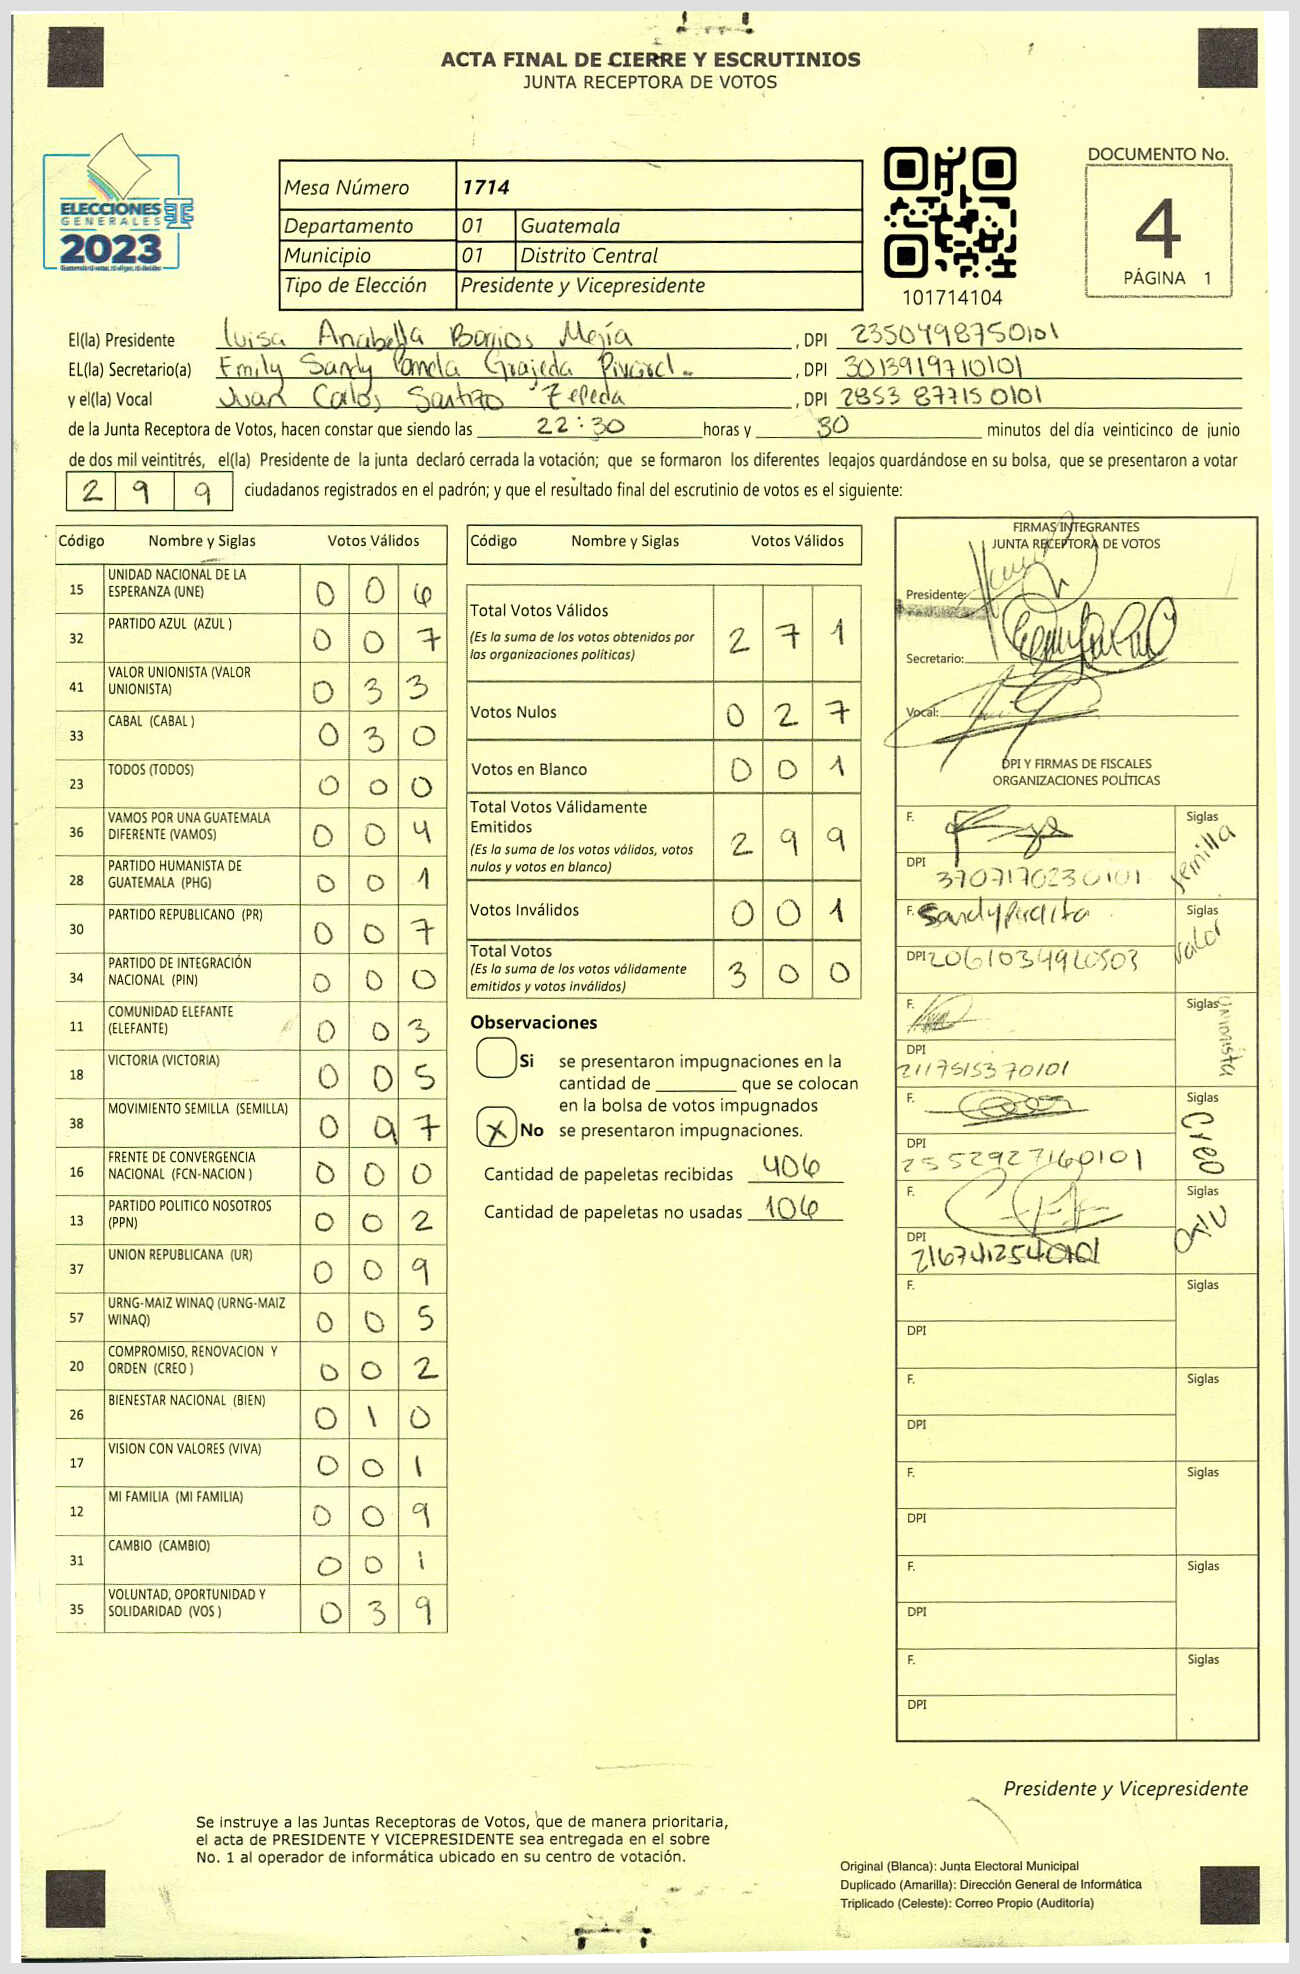 ACTA FINAL DE CIERRE Y ESCRUTINIOS
JUNTA RECEPTORA DE VOTOS
ELECCIONES
GENERALES
2023
Mesa Número 1714
Departamento 01 Guatemala
Municipio 01 Distrito Central
Tipo de Elección Presidente y Vicepresidente
101714104
DOCUMENTO No.
4
PÁGINA 1
El(la) Presidente Luisa Anabella Barrios Mejía, DPI 2350498750101
EL(la) Secretario(a) Emily Sandy Pamela Grajeda, DPI 3013919710101
y el(la) Vocal Juan Carlos Santizo Zepeda, DPI 2853 87715 0101
de la Junta Receptora de Votos, hacen constar que siendo las 22:30 horas y 30 minutos del día veinticinco de junio
de dos mil veintitrés, el(la) Presidente de la junta declaró cerrada la votación; que se formaron los diferentes legajos guardándose en su bolsa, que se presentaron a votar
2 9 9 ciudadanos registrados en el padrón; y que el resultado final del escrutinio de votos es el siguiente:
Código Nombre y Siglas Votos Válidos
15 UNIDAD NACIONAL DE LA
ESPERANZA (UNE) 0 0 6
32 PARTIDO AZUL (AZUL ) 0 0 7
41 VALOR UNIONISTA (VALOR
UNIONISTA) 0 3 3
33 CABAL (CABAL ) 0 3 0
23 TODOS (TODOS) 0 0 0
36 VAMOS POR UNA GUATEMALA
DIFERENTE (VAMOS) 0 0 4
28 PARTIDO HUMANISTA DE
GUATEMALA (PHG) 0 0 1
30 PARTIDO REPUBLICANO (PR) 0 0 7
34 PARTIDO DE INTEGRACIÓN
NACIONAL (PIN) 0 0 0
11 COMUNIDAD ELEFANTE
(ELEFANTE) 0 0 3
18 VICTORIA (VICTORIA) 0 0 5
38 MOVIMIENTO SEMILLA (SEMILLA) 0 9 7
16 FRENTE DE CONVERGENCIA
NACIONAL (FCN-NACION ) 0 0 0
13 PARTIDO POLITICO NOSOTROS
(PPN) 0 0 2
37 UNION REPUBLICANA (UR) 0 0 9
57 URNG-MAIZ WINAQ (URNG-MAIZ
WINAQ) 0 0 5
20 COMPROMISO, RENOVACION Y
ORDEN (CREO ) 0 0 2
26 BIENESTAR NACIONAL (BIEN) 0 1 0
17 VISION CON VALORES (VIVA) 0 0 1
12 MI FAMILIA (MI FAMILIA) 0 0 9
31 CAMBIO (CAMBIO) 0 0 1
35 VOLUNTAD, OPORTUNIDAD Y
SOLIDARIDAD (VOS ) 0 3 9
Código Nombre y Siglas Votos Válidos
Total Votos Válidos 2 7 1
(Es la suma de los votos obtenidos por
las organizaciones políticas)
Votos Nulos 0 2 7
Votos en Blanco 0 0 1
Total Votos Válidamente
Emitidos 2 9 9
(Es la suma de los votos válidos, votos
nulos y votos en blanco)
Votos Inválidos 0 0 1
Total Votos 3 0 0
(Es la suma de los votos válidamente
emitidos y votos inválidos)
Observaciones
Si se presentaron impugnaciones en la
cantidad de ________ que se colocan
en la bolsa de votos impugnados
X No se presentaron impugnaciones.
Cantidad de papeletas recibidas 406
Cantidad de papeletas no usadas 106
FIRMAS INTEGRANTES
JUNTA RECEPTORA DE VOTOS
Presidente:
Secretario:
Vocal:
DPI Y FIRMAS DE FISCALES
ORGANIZACIONES POLÍTICAS
F. Siglas Semilla
DPI 3707170230101
F. Siglas Valor
DPI 2061034920503
F. Siglas Unionista
DPI 2117515370101
F. Siglas Creo
DPI 2552927160101
F. Siglas
DPI 2167412540101
F. Siglas
DPI
F. Siglas
DPI
F. Siglas
DPI
F. Siglas
DPI
F. Siglas
DPI
Presidente y Vicepresidente
Se instruye a las Juntas Receptoras de Votos, que de manera prioritaria,
el acta de PRESIDENTE Y VICEPRESIDENTE sea entregada en el sobre
No. 1 al operador de informática ubicado en su centro de votación.
Original (Blanca): Junta Electoral Municipal
Duplicado (Amarilla): Dirección General de Informática
Triplicado (Celeste): Correo Propio (Auditoría)